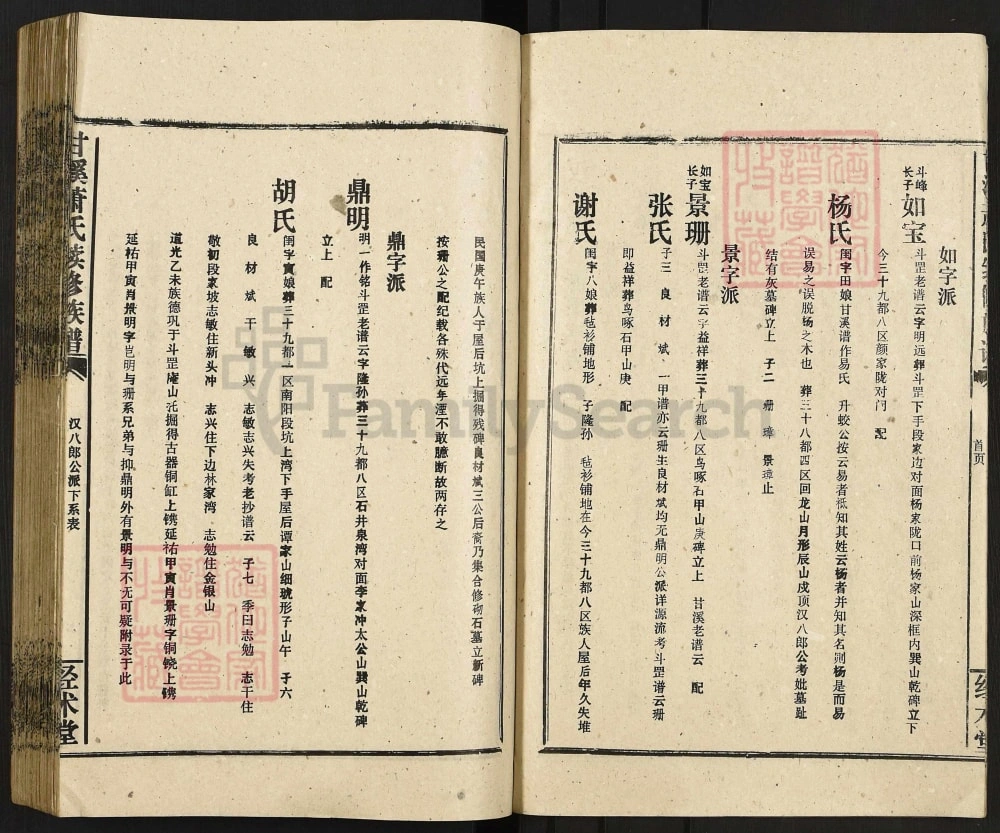 如字派
斗峰长子 如宝 斗罡老谱云字明远葬斗罡下手段家边对面杨家陇口前杨家山深框内巽山乾碑立下
今三十九都八区颜家陇对门 配
杨氏 闺字田娘甘溪谱作易氏 升蛟公按云易者祗知其姓云杨者并知其名则杨是而易
误易之误脱杨之木也 葬三十八都四区回龙山月形辰山戌顶汉八郎公考妣墓趾
结有灰墓碑立上 子二 珊 璋 景璋止
景字派
如宝长子 景珊 斗罡老谱云字益祥葬三十九都八区鸟啄石甲山庚碑立上 甘溪老谱云 配
张氏 子三 良 材 斌 一甲谱亦云珊生良材斌均无鼎明公派详源流考斗罡谱云珊
即益祥葬鸟啄石甲山庚 配
谢氏 闺字八娘葬毡衫铺地形 子隆孙 毡衫铺地在今三十九都八区族人屋后年久失堆
民国庚午族人于屋后坑上掘得残碑良材斌三公后裔乃集合修砌石墓立新碑
按珊公之配纪载各殊代远年湮不敢臆断故两存之
鼎字派
鼎明 明一作铭斗罡老谱云字隆孙葬三十九都八区石井泉湾对面李家冲太公山巽山乾碑
立上 配
胡氏 闺字寅娘葬三十九都一区南阳段坑上湾下手屋后谭家山细琥形子山午 子六
良 材 斌 干 敏 兴 志敏志兴失考老抄谱云 子七 季曰志勉 志干住
敬初段家坡志敏住新头冲 志兴住下边林家湾 志勉住金银山
道光乙未族德巩于斗罡庵山圫掘得古器铜缸上镌延祐甲寅肖景珊字铜铙上镌
延祐甲寅肖景明字岂明与珊系兄弟与抑鼎明外有景明与不无可疑附录于此
甘溪萧氏续修族谱
汉八郎公派下系表
经术堂
首页
FamilySearch